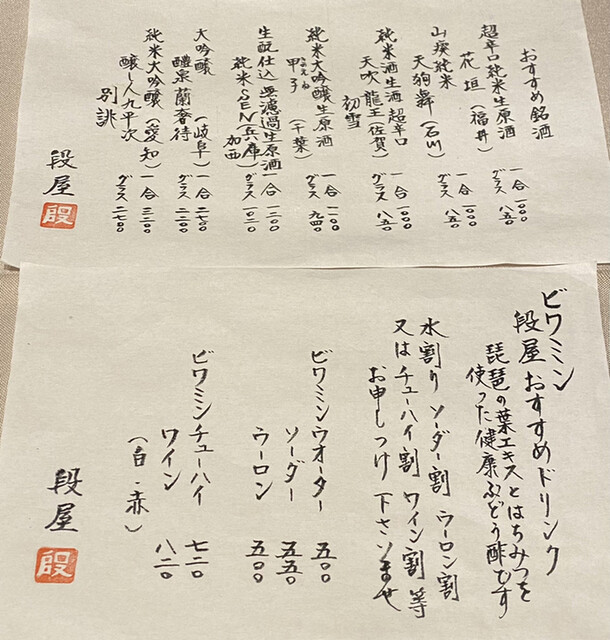 おすすめ銘酒
超辛口純米生原酒
花垣（福井）
一合 一〇〇〇
グラス 八五〇
山廃純米
天狗舞（石川）
一合 一〇〇〇
グラス 八五〇
純米酒生酒超辛口
天吹 龍王（佐賀）
初雪
一合 一〇〇〇
グラス 八五〇
純米大吟醸生原酒
甲子（千葉）
一合 一一〇〇
グラス 九四〇
生酛仕込 無濾過生原酒
純米SEN（兵庫）
加西
一合 一二〇〇
グラス 一〇二〇
大吟醸（岐阜）
醴泉 蘭奢待
一合 二七〇〇
グラス
純米大吟醸（愛知）
醸し人九平次
別誂
一合 三二〇〇
グラス 二七〇〇
段屋
ビワミン
段屋おすすめドリンク
琵琶の葉エキスとはちみつを
使った健康ぶどう酢むす
水割り ソーダー割 ウーロン割
又はチューハイ割 ワイン割等
お申しつけ下さいませ
ビワミンウオーター 五〇〇
ソーダー 五五〇
ウーロン 五〇〇
ビワミンチューハイ 七二〇
ワイン 八二〇
（白・赤）
段屋